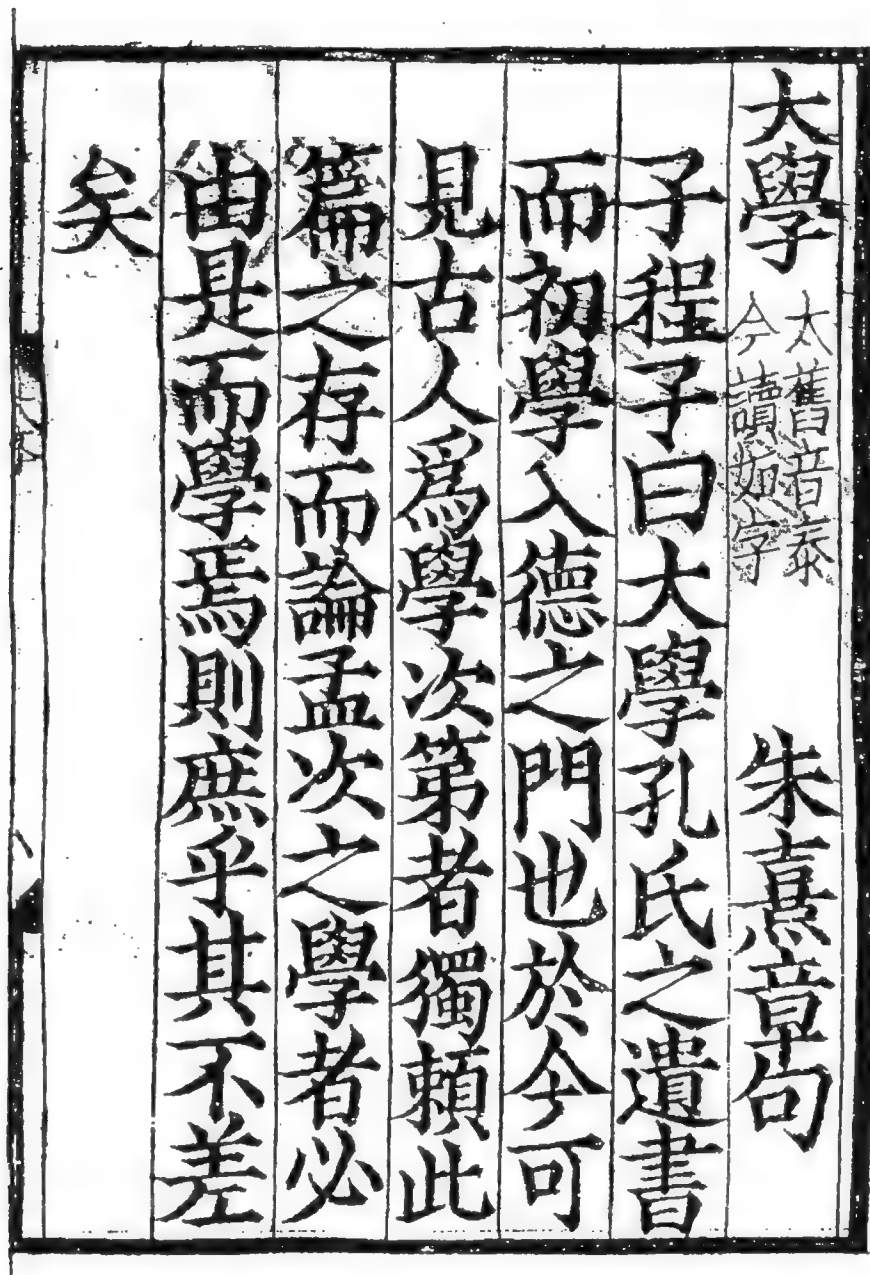 大學 太舊音泰今讀如字 朱熹章句
子程子曰大學孔氏之遺書
而初學入德之門也於今可
見古人爲學次第者獨頼此
篇之存而論孟次之學者必
由是而學焉則庶乎其不差
矣